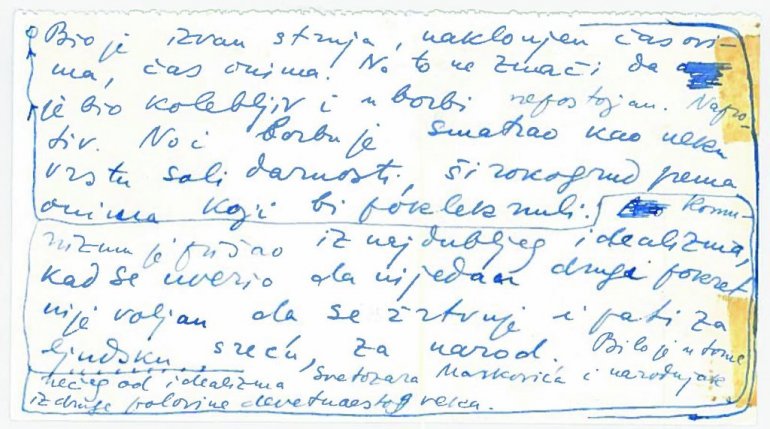 Bio je izvan struja, naklonjen čas ovi-
ma, čas onima. No to ne znači da
je bio kolebljiv i u borbi nepostojan. Napro-
tiv. No i borbu je smatrao kao neku
vrstu solidarnosti, širokogrud prema
onima koji bi pokleknuli. Komu-
nizmu je prišao iz najdubljeg idealizma,
kad se uverio da nijedan drugi pokret
nije voljan da se žrtvuje i pati za
ljudsku sreću, za narod. Bilo je u tome
nečeg od idealizma Svetozara Markovića i narodnjaka
iz druge polovine devetnaestog veka.